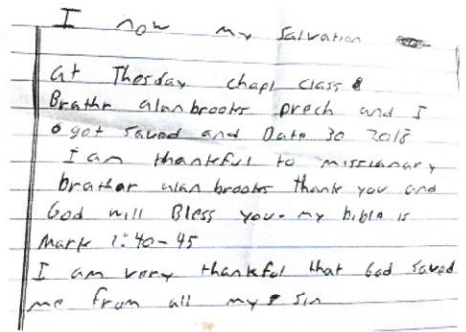 I now my salvation
at Thesday chapl class
Brathr alan brooks prech and I
got saved and Date 30 2018
I am thankful to missianary
brather alan brooks thank you and
God will Bless you. my bible is
Mark 1:40-45
I am very thankful that God saved
me from all my sin